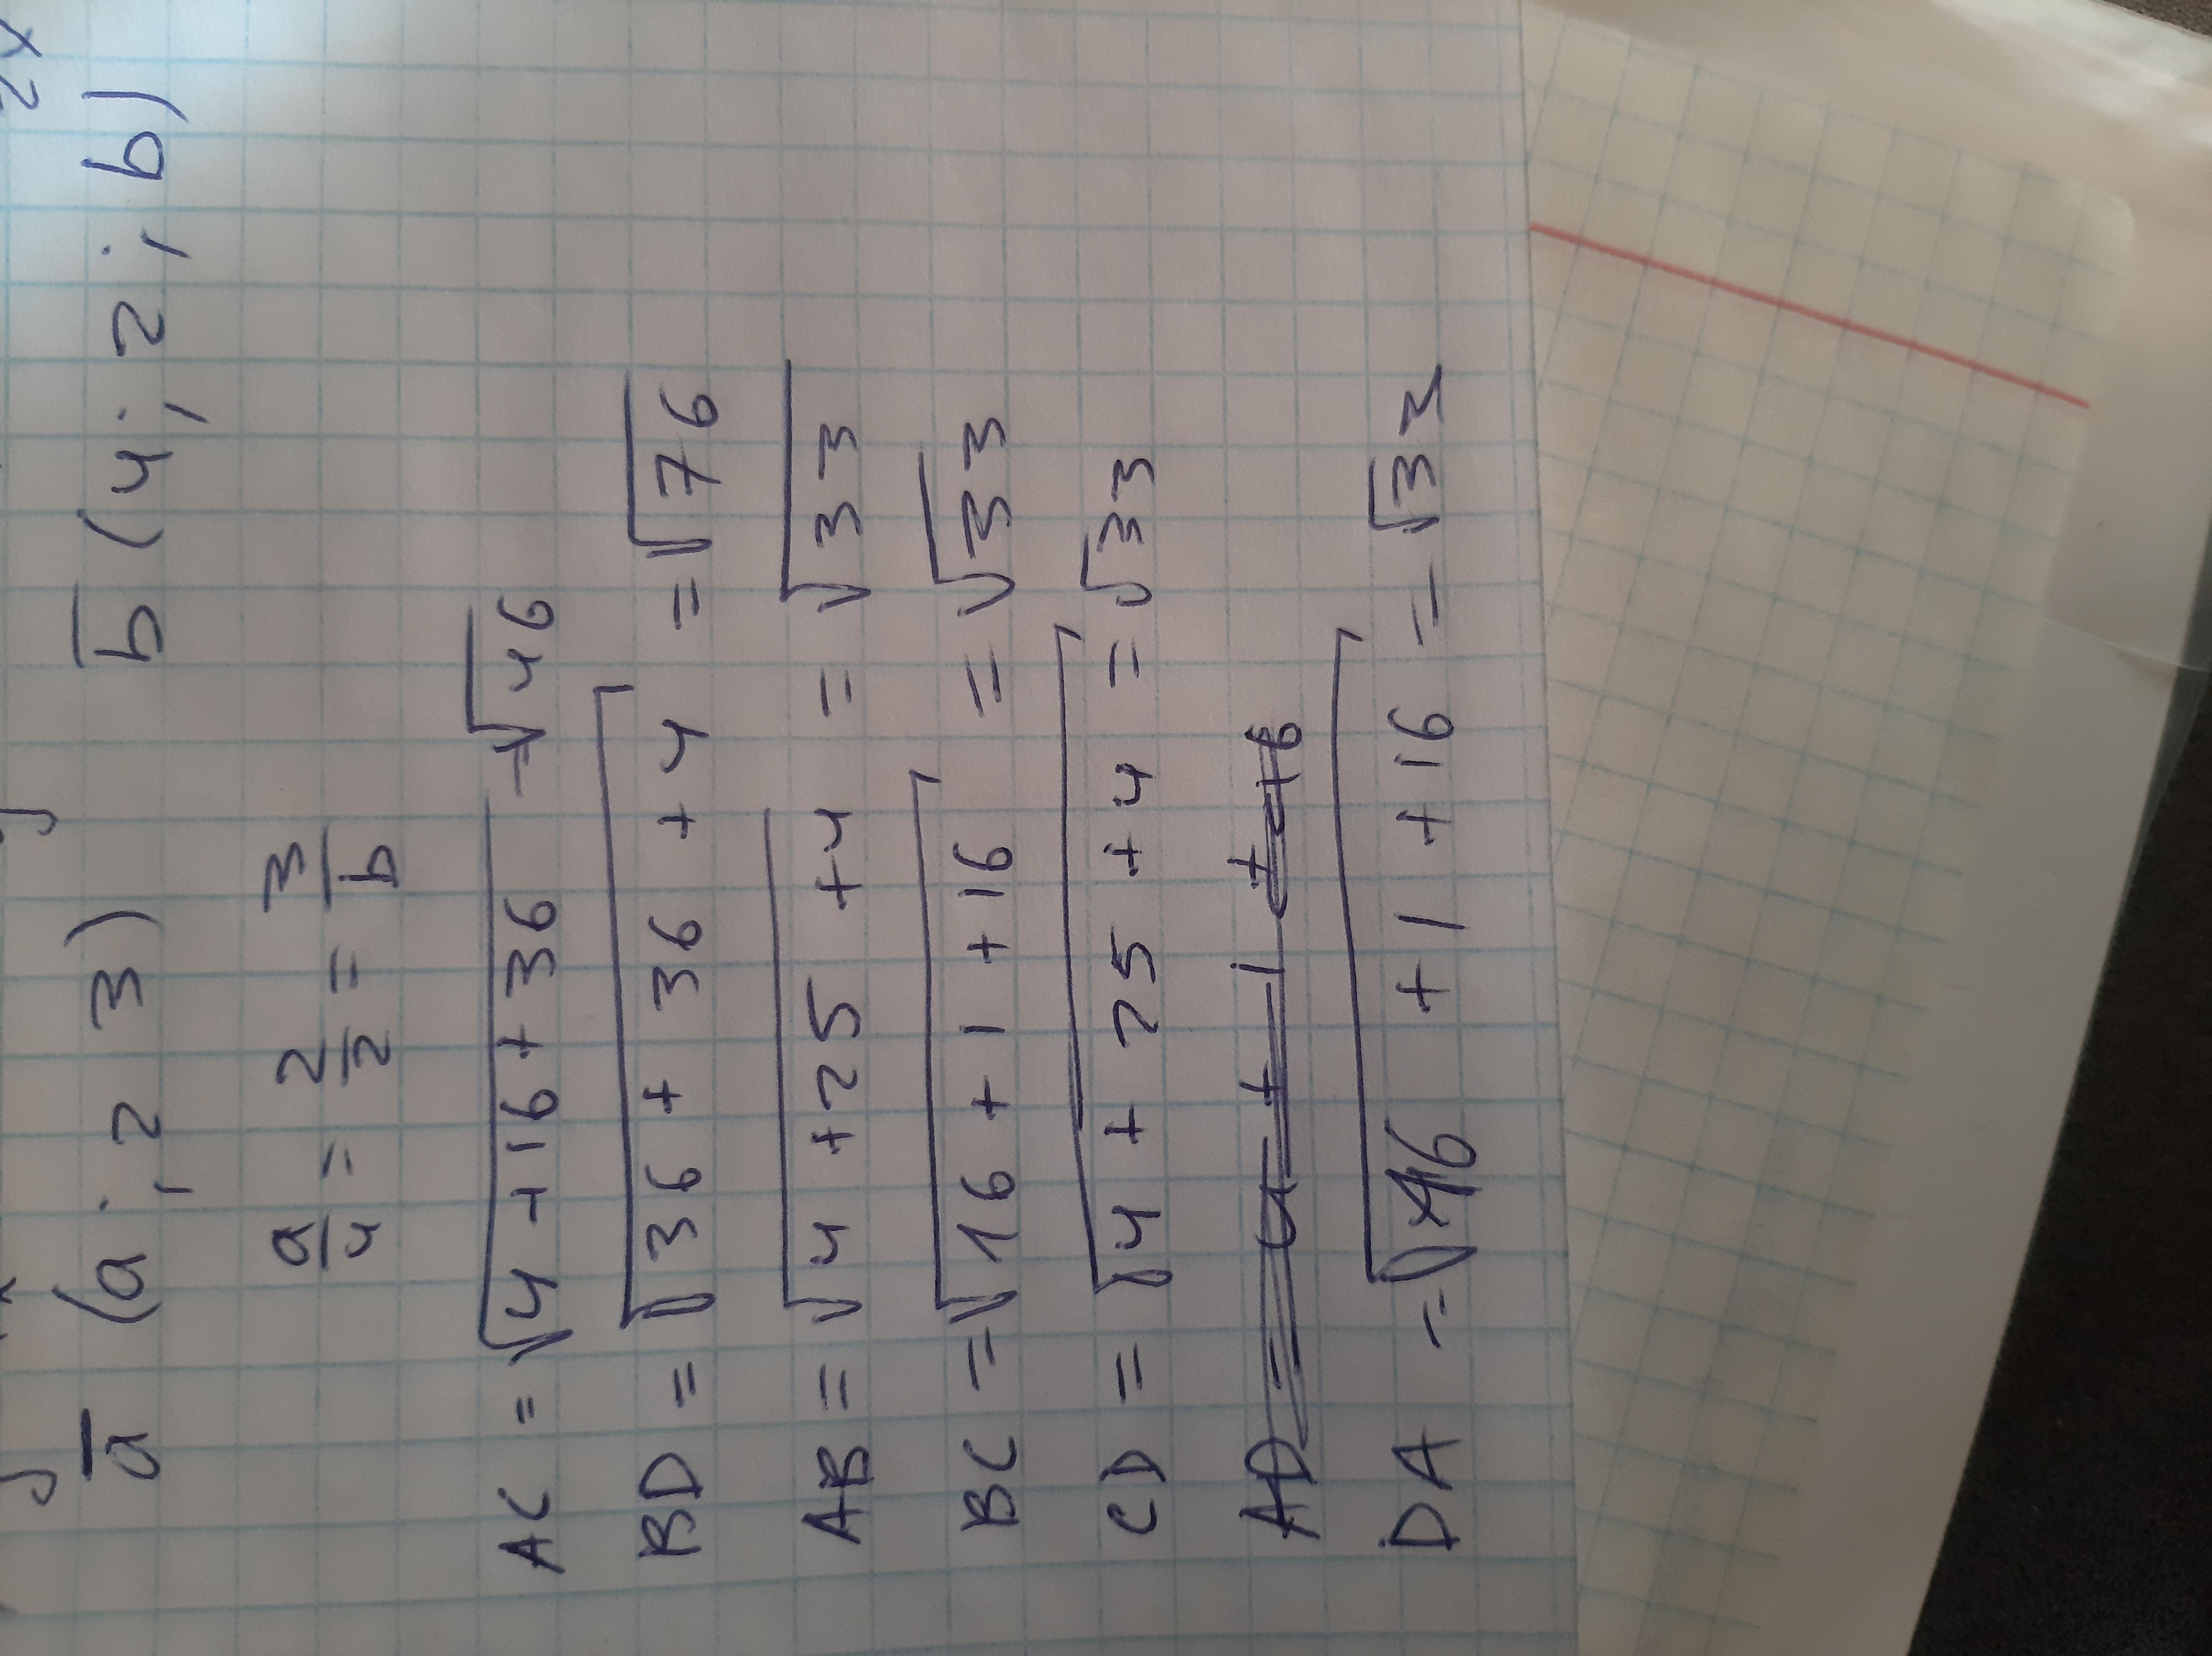 a̅ (a ; 2 3) b̅ (4 ; 2 ; b)
a/4 = 2/2 = 3/b
AC = √4 + 16 + 36 = √46
BD = √36 + 36 + 4 = √76
AB = √4 + 25 + 4 = √33
BC = √16 + 1 + 16 = √33
CD = √4 + 25 + 4 = √33
AD = 4 + 1 + 16
DA = √16 + 1 + 16 = √33